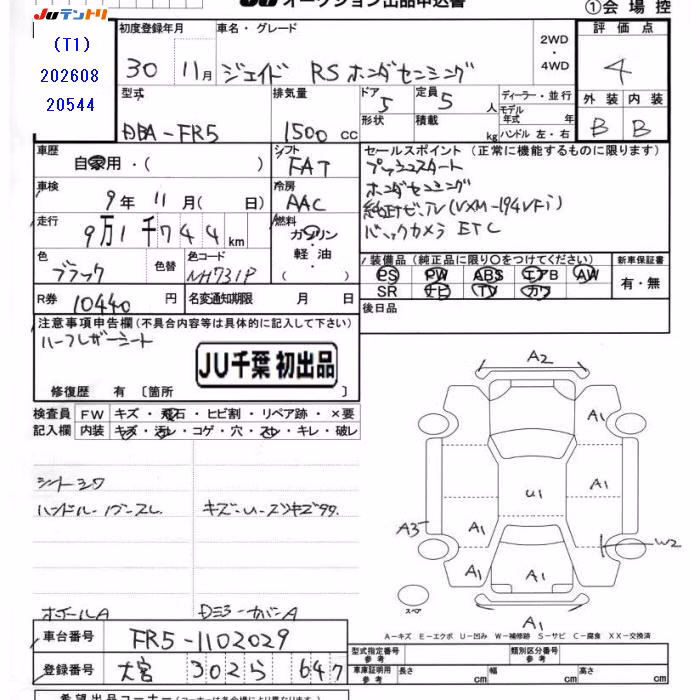 Juテントリ
オークション出品申込書
①会場控
(T1)
202608
20544
初度登録年月
30 11月
車名・グレード
ジェイド RSホンダセンシング
2WD
・
4WD
評価点
4
型式
DBA-FR5
排気量
1500 cc
ドア
5
形状
定員
5 人
積載 kg
ディーラー・並行
モデル
年式 年
ハンドル 左・右
外装 内装
B B
車歴
自家用・( )
シフト
FAT
セールスポイント (正常に機能するものに限ります)
プッシュスタート
ホンダセンシング
純正ナビ.TV(VXM-194VFi)
バックカメラ ETC
車検
9年 11月( 日)
冷房
AAC
走行
9万1千744km
燃料
ガソリン
軽油
・( )
色
ブラック
色替
色コード
NH731P
装備品 (純正品に限り○をつけてください)
PS PW ABS エアB AW
SR ナビ TV カワ
新車保証書
有・無
R券 10440 円
名変通知期限 月 日
後日品
注意事項申告欄(不具合内容等は具体的に記入して下さい)
ハーフレザーシート
JU千葉 初出品
修復歴 有 〔箇所 〕
検査員
記入欄
FW キズ・飛石・ヒビ割・リペア跡・×要
内装 キズ・汚レ・コゲ・穴・スレ・キレ・破レ
シートシワ
ハンドル・ノブスレ
ホイールA
Dミラーカバー A
A2
A1
A1
U1
A3
A1
W2
A1
A1
A1
スペア
A-キズ E-エクボ U-凹み W-補修跡 S-サビ C-腐食 XX-交換済
車台番号 FR5-1102029
登録番号 大宮 302ら 647
型式指定番号
参考
類別区分番号
参考
車庫証明用
参考
長さ cm 幅 cm 高さ cm
希望出品コーナー